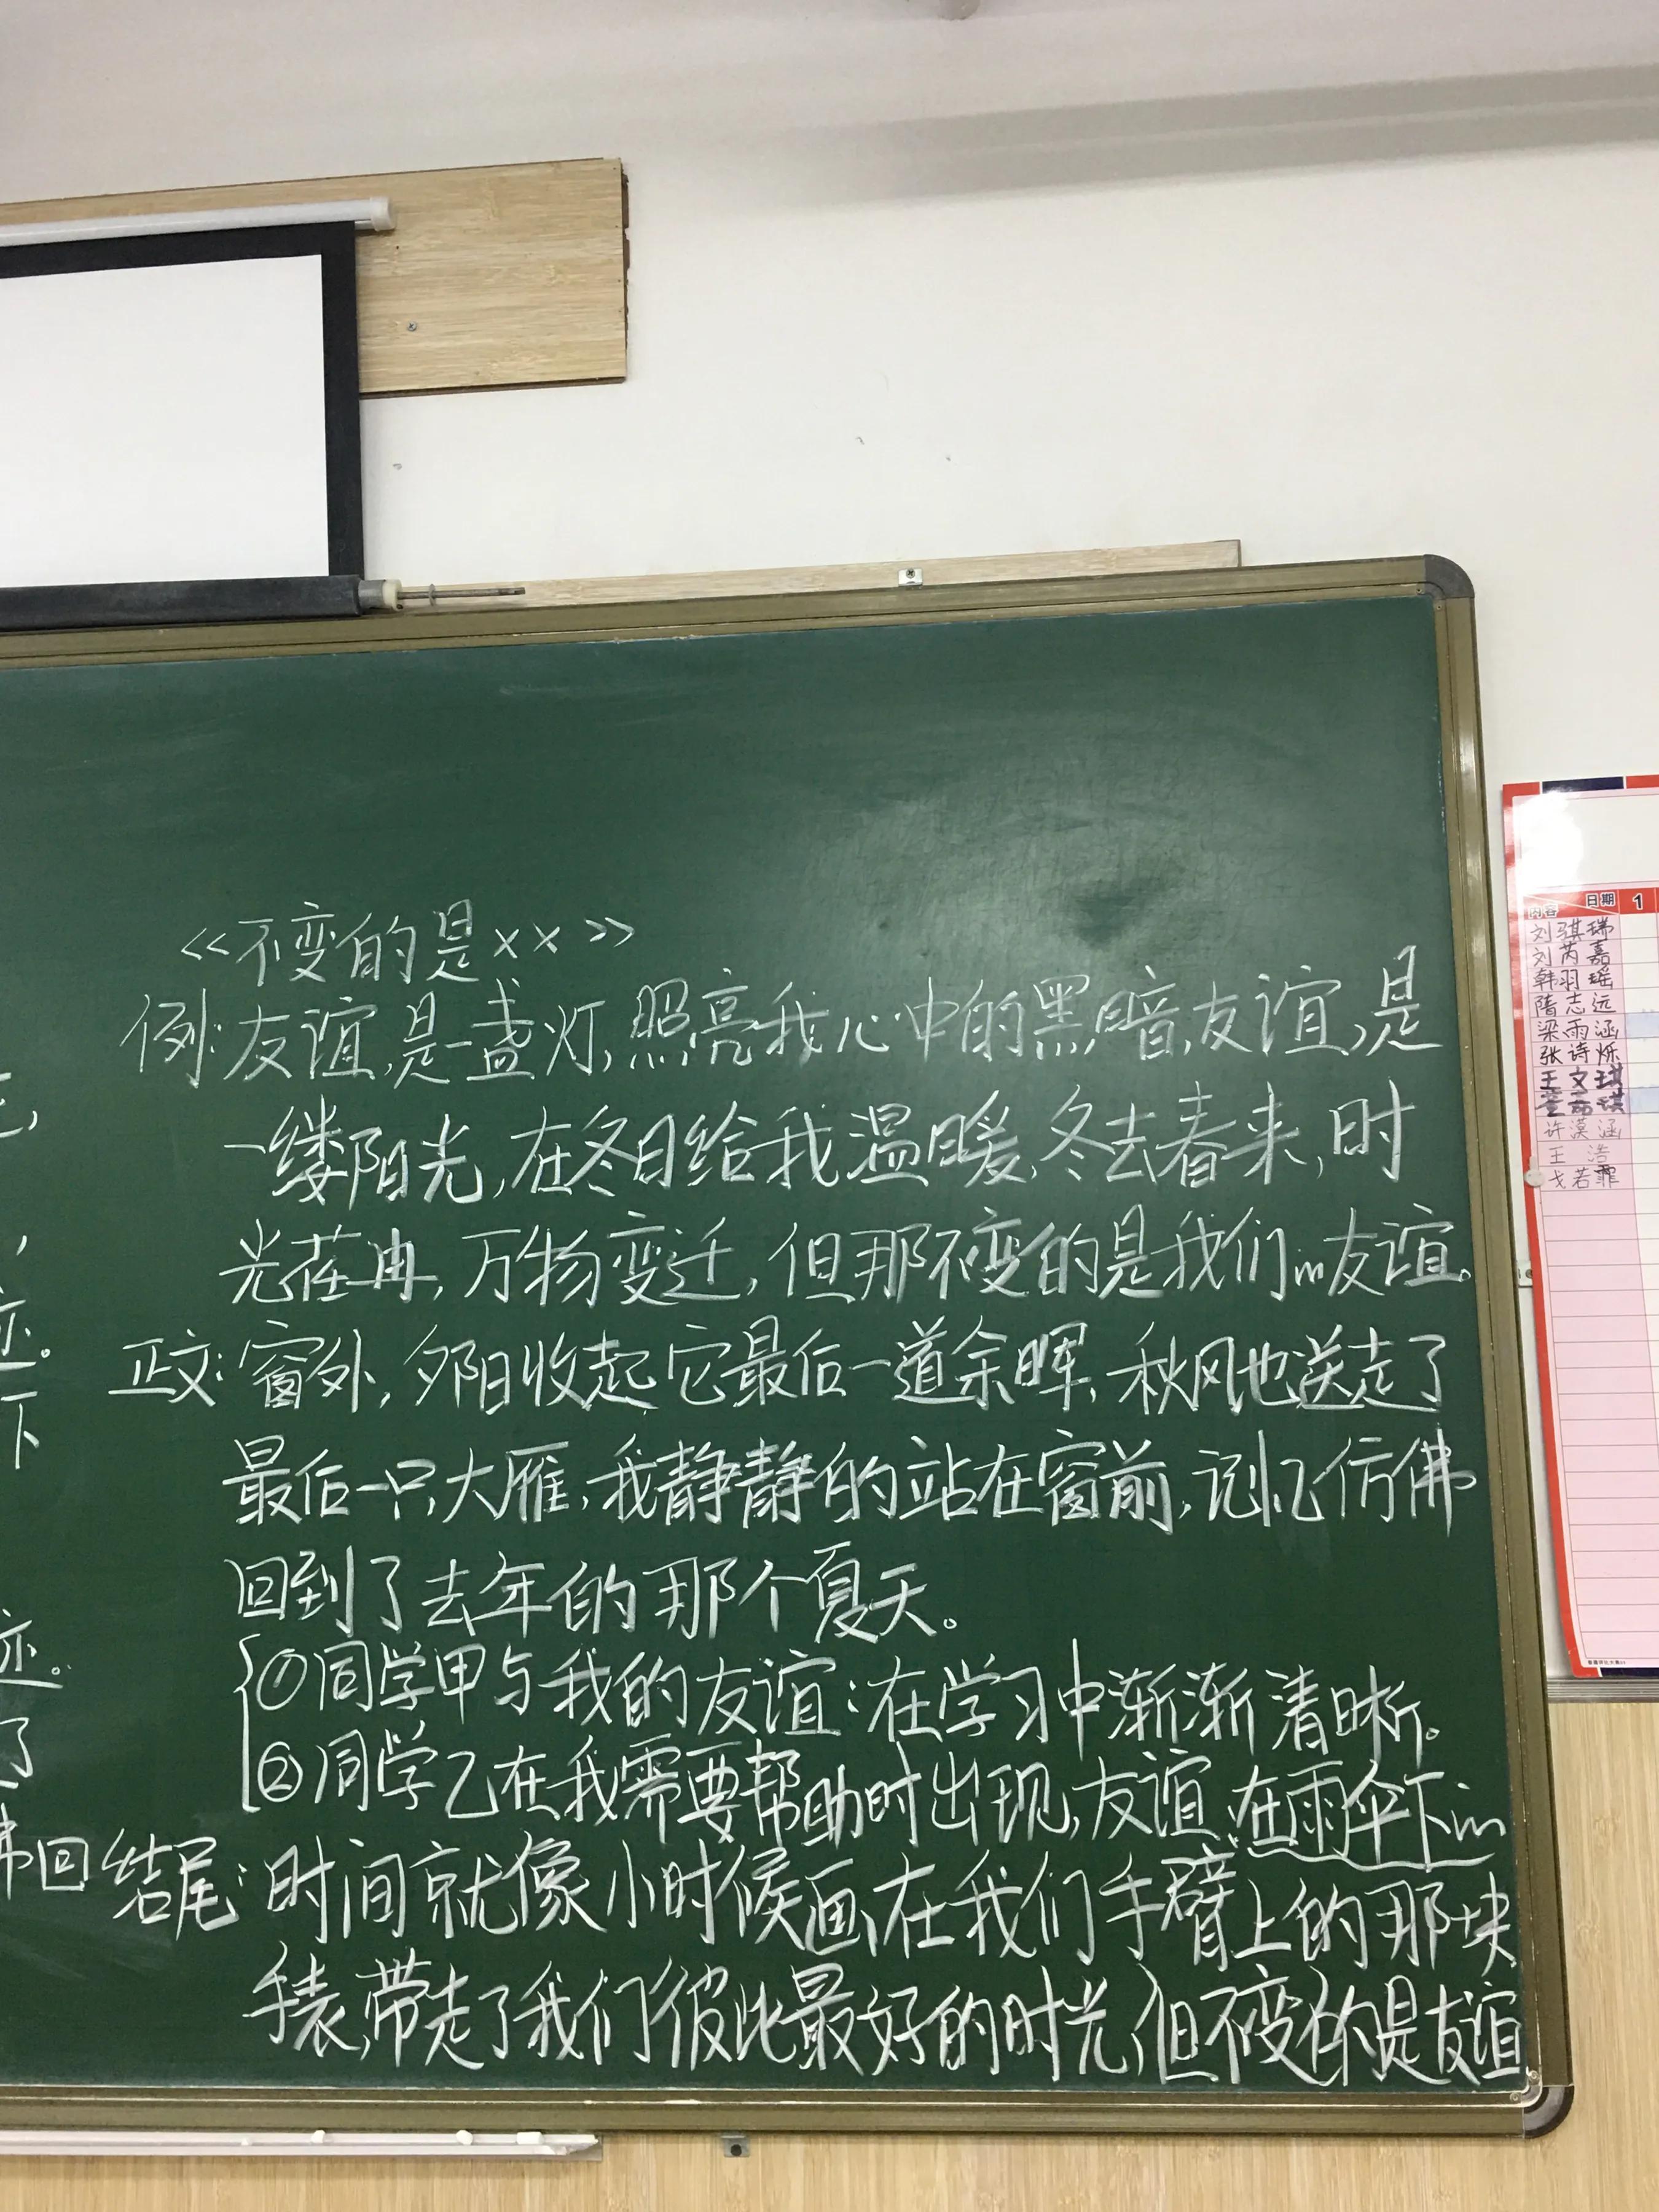 《不变的是××》
例:友谊,是一盏灯,照亮我心中的黑暗,友谊,是
一缕阳光,在冬日给我温暖,冬去春来,时
光荏冉,万物变迁,但那不变的是我们的友谊。
正文:窗外,夕阳收起它最后一道余晖,秋风也送走了
最后一只大雁,我静静的站在窗前,记忆仿佛
回到了去年的那个夏天。
①同学甲与我的友谊:在学习中渐渐清晰。
②同学乙在我需要帮助时出现,友谊在雨伞下…
结尾:时间就像小时候画在我们手臂上的那块
手表,带走了我们彼此最好的时光,但不变的是友谊
迹。
下
迹。
了
佛回
日期 1
内容
刘骐瑞
刘芮嘉
韩羽瑶
隋志远
梁雨涵
张诗烁
王文琪
许漠涵
王浩
戈若霏